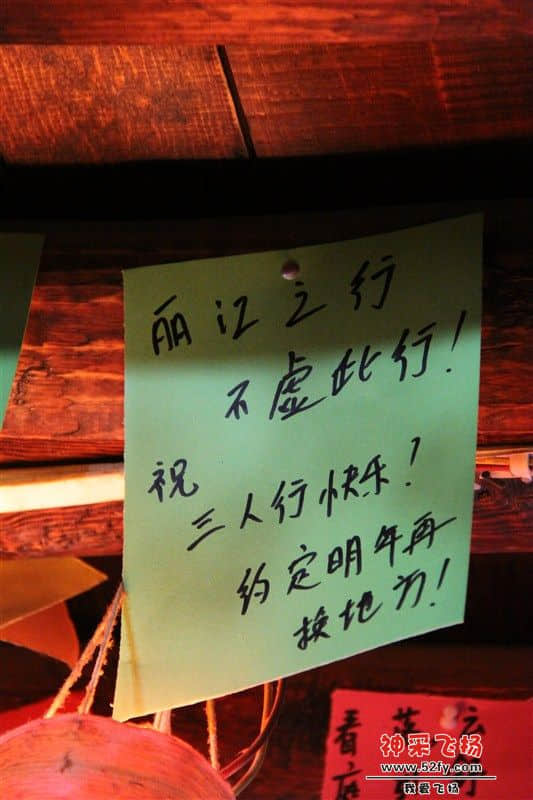 丽江之行
不虚此行！
祝
三人行快乐！
约定明年再
换地方！
看
庭
神采飞扬
www.52fy.com
我爱飞扬